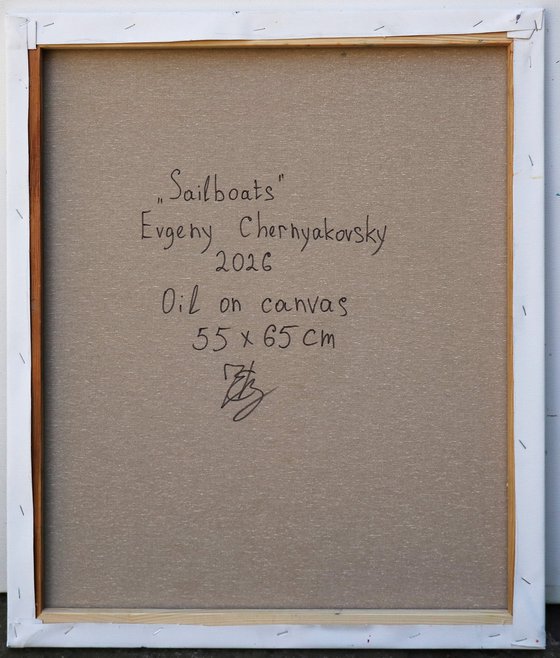 „Sailboats"
Evgeny Chernyakovsky
2026
Oil on canvas
55 x 65 cm